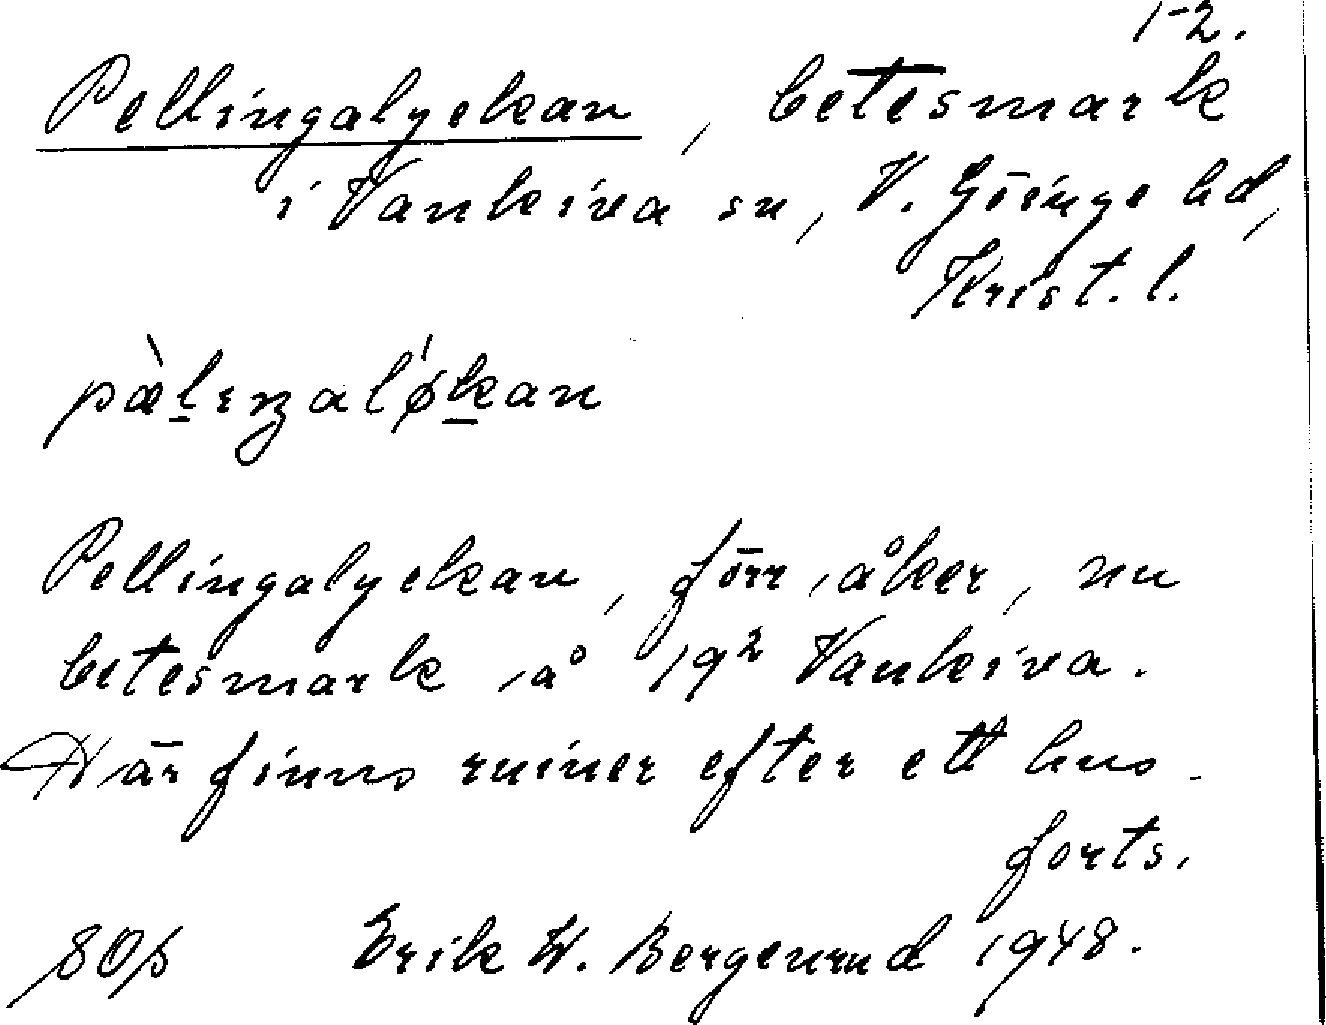 1-2.
Pellingalyckan, betesmark
i Vankiva sn, V. Göinge hd,
Krist. l.
pæ̀lıŋaløkan
Pellingalyckan, förr åker, nu
betesmark å 19² Vankiva.
Här finns ruiner efter ett hus.
forts.
Erik W. Bergenrud 1948.